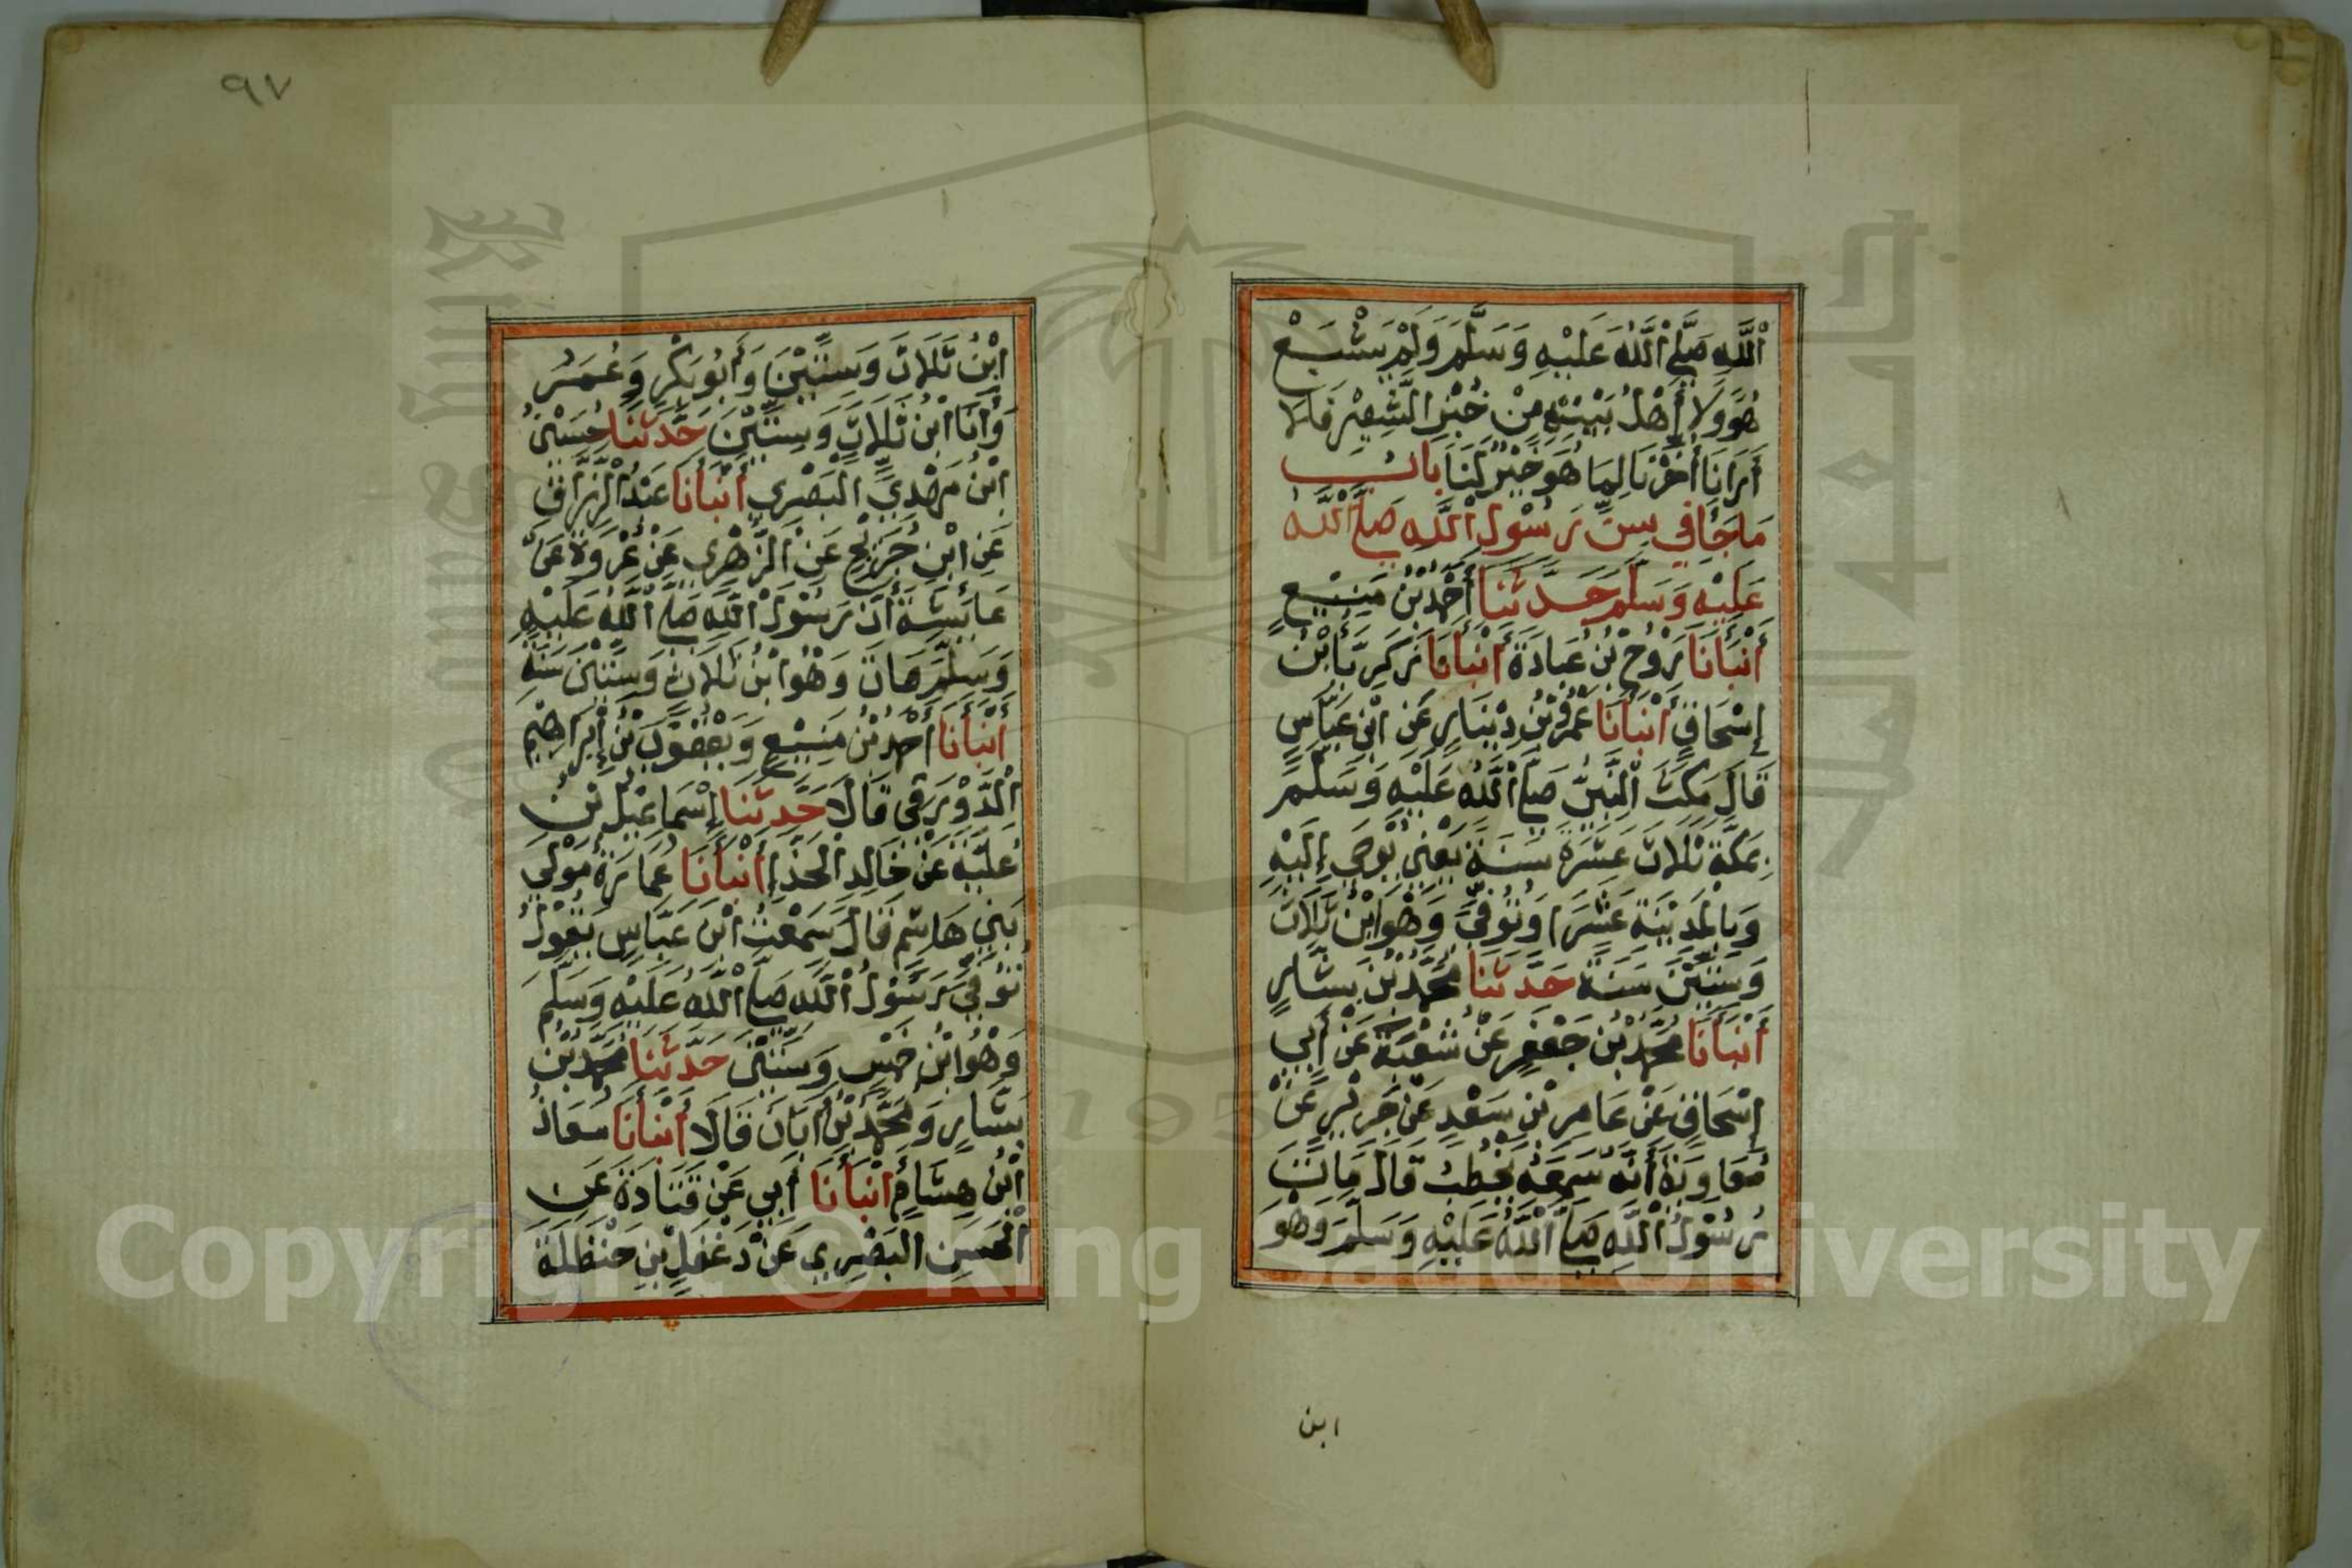 اللَّهِ صَلَّى اللَّهُ عَلَيْهِ وَسَلَّمَ وَلَمْ يَشْبَعْ
هُوَ وَلَا أَهْلُ بَيْتِهِ مِنْ خُبْزِ الشَّعِيْرِ فَلَا
أَرَانَا أُخِّرْنَا لِمَا هُوَ خَيْرٌ لَنَا بَابُ
مَا جَاءَ فِي سِنِّ رَسُوْلِ اللَّهِ صَلَّى اللَّهُ
عَلَيْهِ وَسَلَّمَ حَدَّثَنَا أَحْمَدُ بْنُ مَنِيْعٍ
أَنْبَأَنَا رَوْحُ بْنُ عُبَادَةَ أَنْبَأَنَا زَكَرِيَّا بْنُ
إِسْحَاقَ أَنْبَأَنَا عَمْرُو بْنُ دِيْنَارٍ عَنِ ابْنِ عَبَّاسٍ
قَالَ مَكَثَ النَّبِيُّ صَلَّى اللَّهُ عَلَيْهِ وَسَلَّمَ
بِمَكَّةَ ثَلَاثَ عَشْرَةَ سَنَةً يَعْنِي يُوحَى إِلَيْهِ
وَبِالْمَدِيْنَةِ عَشْرًا وَتُوُفِّيَ وَهُوَ ابْنُ ثَلَاثٍ
وَسِتِّيْنَ سَنَةً حَدَّثَنَا مُحَمَّدُ بْنُ بَشَّارٍ
أَنْبَأَنَا مُحَمَّدُ بْنُ جَعْفَرٍ عَنْ شُعْبَةَ عَنْ أَبِي
إِسْحَاقَ عَنْ عَامِرِ بْنِ سَعْدٍ عَنْ جَرِيْرٍ عَنْ
مُعَاوِيَةَ أَنَّهُ سَمِعَهُ يَخْطُبُ قَالَ مَاتَ
رَسُوْلُ اللَّهِ صَلَّى اللَّهُ عَلَيْهِ وَسَلَّمَ وَهُوَ
ابن
٩٧
ابْنُ ثَلَاثٍ وَسِتِّيْنَ وَأَبُو بَكْرٍ وَعُمَرُ
وَأَنَا ابْنُ ثَلَاثٍ وَسِتِّيْنَ حَدَّثَنَا حُسَيْنُ
ابْنُ مَهْدِيٍّ الْبَصْرِي أَنْبَأَنَا عَبْدُ الرَّزَّاقِ
عَنِ ابْنِ جُرَيْجٍ عَنِ الزُّهْرِي عَنْ عُرْوَةَ عَنْ
عَائِشَةَ أَنَّ رَسُوْلَ اللَّهِ صَلَّى اللَّهُ عَلَيْهِ
وَسَلَّمَ مَاتَ وَهُوَ ابْنُ ثَلَاثٍ وَسِتِّيْنَ سَنَةً
أَنْبَأَنَا أَحْمَدُ بْنُ مَنِيْعٍ وَيَعْقُوْبُ بْنُ إِبْرَاهِيْمَ
الدَّوْرَقِي قَالَا حَدَّثَنَا إِسْمَاعِيْلُ بْنُ
عُلَيَّةَ عَنْ خَالِدِ الْحَذَّاءِ أَنْبَأَنَا عُمَارَةُ مَوْلَى
بَنِي هَاشِمٍ قَالَ سَمِعْتُ ابْنَ عَبَّاسٍ يَقُوْلُ
تُوُفِّيَ رَسُوْلُ اللَّهِ صَلَّى اللَّهُ عَلَيْهِ وَسَلَّمَ
وَهُوَ ابْنُ خَمْسٍ وَسِتِّيْنَ حَدَّثَنَا مُحَمَّدُ بْنُ
بَشَّارٍ وَمُحَمَّدُ بْنُ أَبَانَ قَالَا أَنْبَأَنَا مُعَاذُ
ابْنُ هِشَامٍ أَنْبَأَنَا أَبِي عَنْ قَتَادَةَ عَنِ
الْحَسَنِ الْبَصْرِي عَنْ دَغْفَلِ بْنِ حَنْظَلَةَ
Copyright © King Saud University